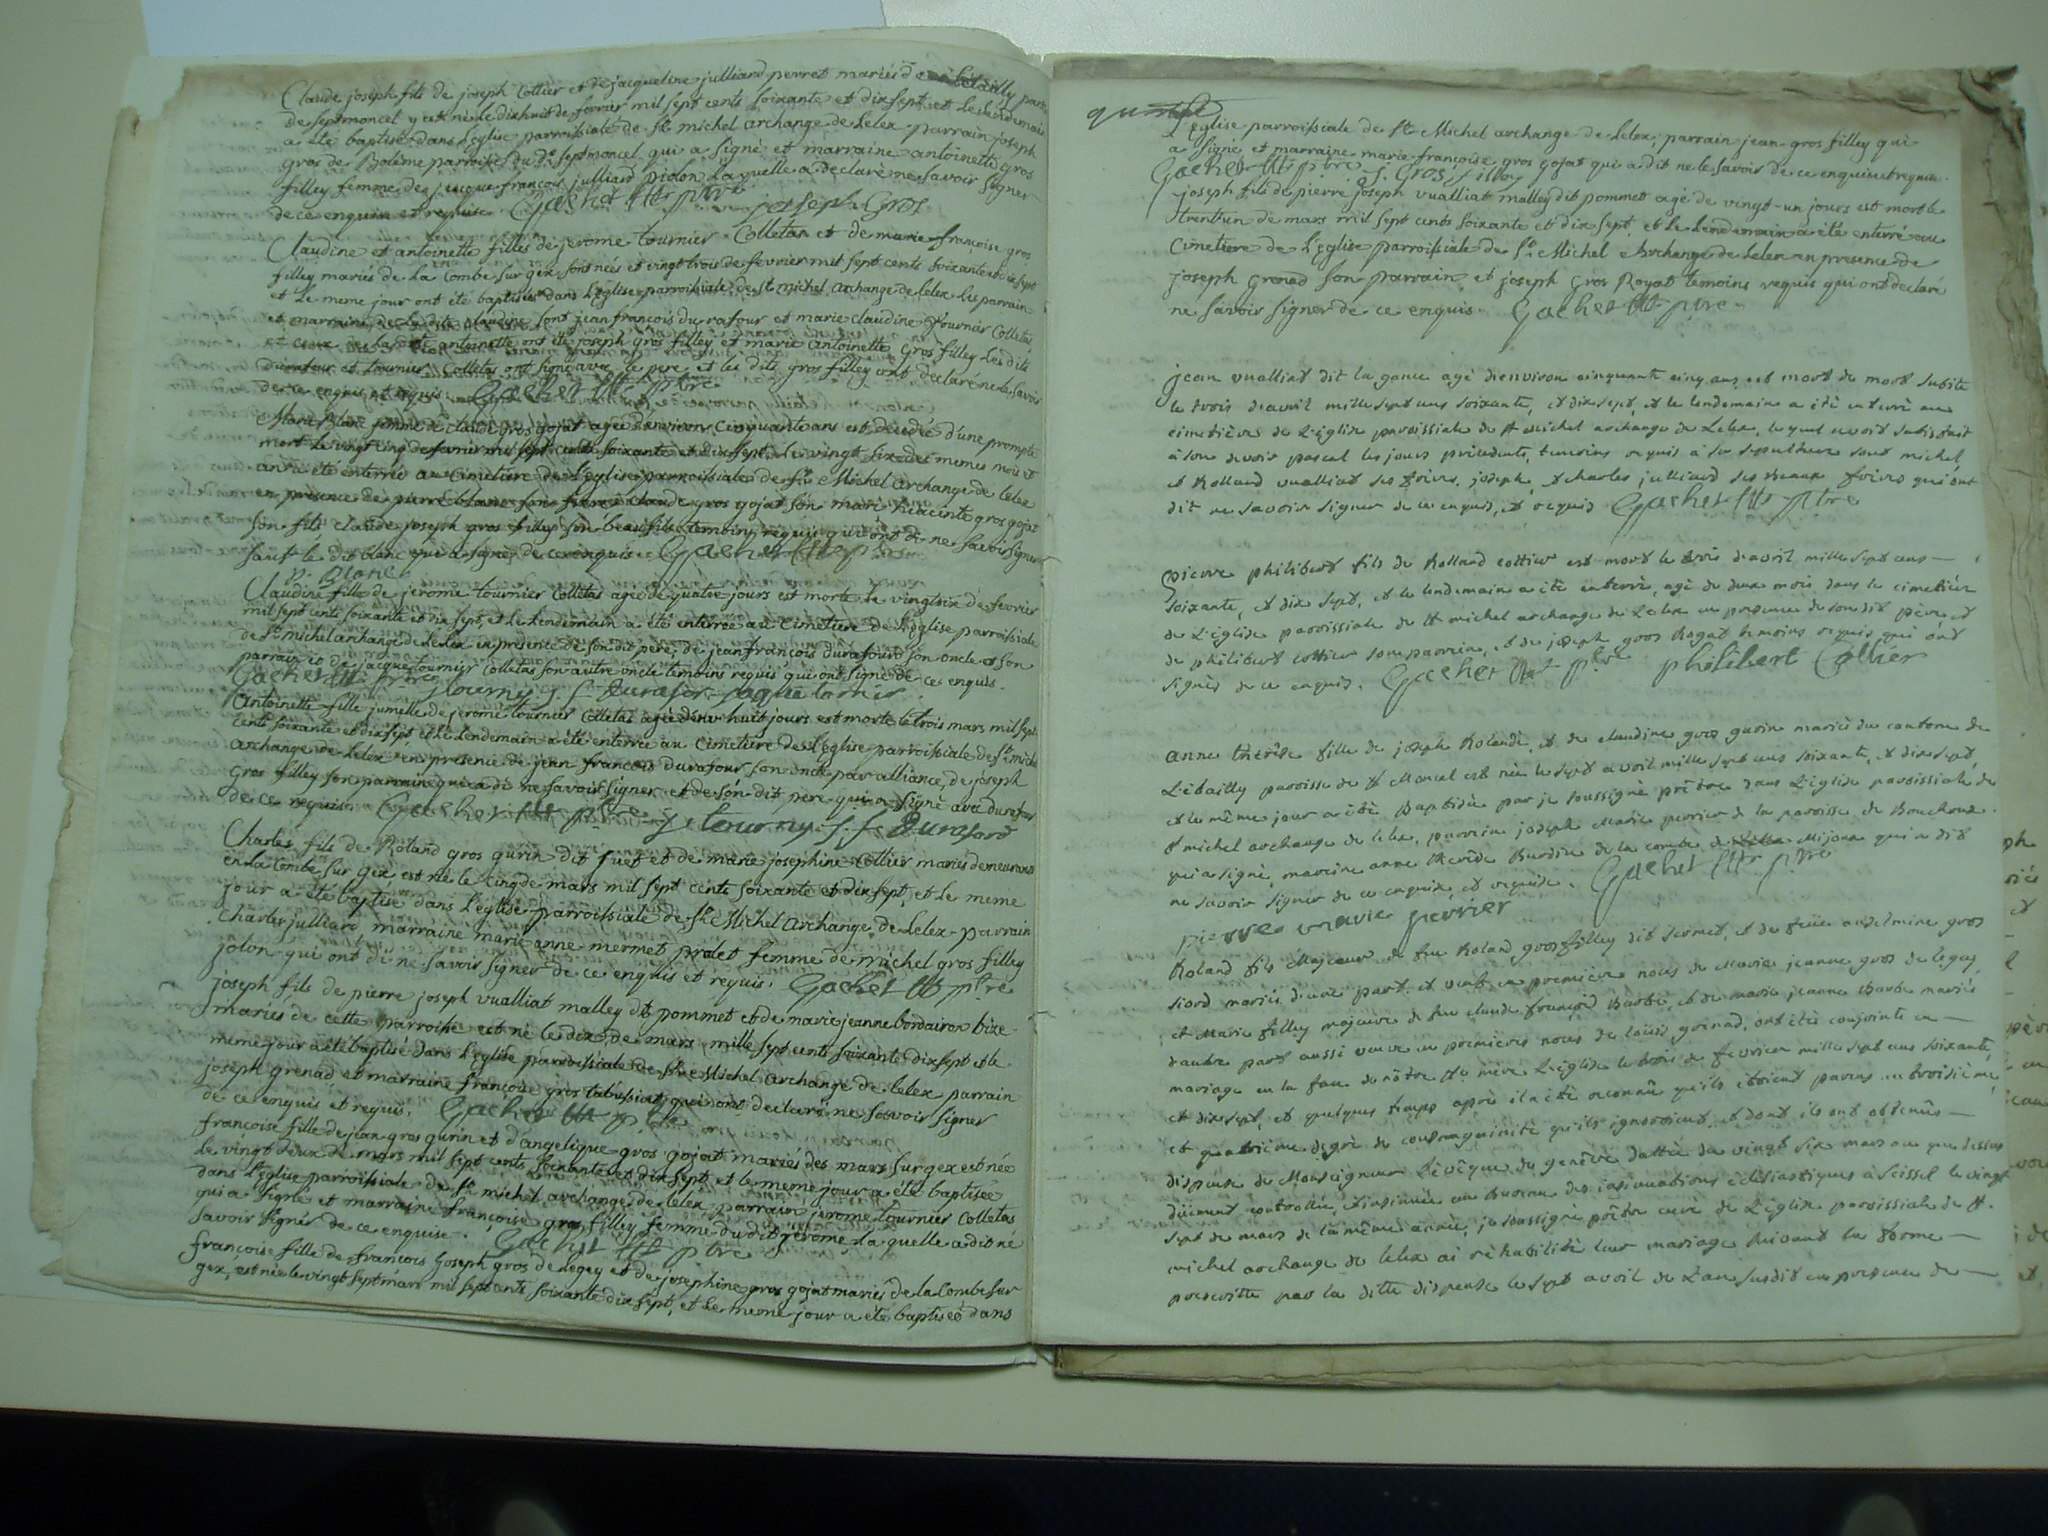 Claude joseph fils de joseph Cottier et de jacqueline julliard perret mariés de l'Etailly paroi
de septmoncel y est né le dixhuit de fevrier mil sept cents soixante et dix sept et le lendemain
a été baptisé dans l'eglise parroissiale de St michel archange de Lelex parrain joseph
gros de Bolême parroisse du dt septmoncel qui a signé et marraine antoinette gros
filley femme de jacque françois julliard piolon laquelle a declaré ne savoir signer
de ce enquise et requise Gachet ptre joseph Gros
Claudine et antoinette filles de jerome tournier Colletas et de marie françoise gros
filley mariés de la Combe sur gex sont nées et vingt trois de fevrier mil sept cents soixante et dix sept
et le meme jour ont été baptisées dans l'eglise parroissiale de St michel archange de Lelex les parrain
et marraine de la dite claudine sont jean françois durafour et marie claudine tournier Colletas
et ceux de la dite antoinette ont été joseph gros filley et marie antoinette gros filley les dits
durafour et tournier Colletas ont signé avec le pere et les dits gros filley ont declaré ne le savoir
de ce enquis et requis Gachet ptre
Marie Blanc femme de claude gros gojat agée d'environ cinquante ans est decedée d'une prompte
mort le vingt cinq de fevrier mil sept cents soixante et dix sept, le vingt six des memes mois et
an a été enterrée au Cimetiere de l'eglise parroissiale de St Michel archange de lelex
en presence de pierre blanc son frere claude gros gojat son mari hiacinte gros gojat
son fils, claude joseph gros filley son beau fils temoins requis qui ont di ne savoir signer
sauf le dit blanc qui a signé de ce enquis Gachet ptre
p. blanc
Claudine fille de jerome tournier Colletas agée de quatre jours est morte le vingt six de fevrier
mil sept cents soixante et dix sept, et le lendemain a été enterrée au Cimetiere de l'eglise parroissiale
de St michel archange de Lelex en presence de son dit pere, de jean françois durafourd son oncle et son
parrain et de jacque tournier Colletas son autre oncle temoins requis qui ont signé de ce enquis
Gachet ptre j tourny j. f. durafor jaque tornier
Antoinette fille jumelle de jerome tournier Colletas agée d'env huit jours est morte le trois mars mil sept
cents soixante et dix sept et le lendemain a été enterrée au Cimetiere de l'eglise parroissiale de St miche
archange de Lelex en presence de jean françois durafour son oncle par alliance, de joseph
gros filley son parrain qui a di ne savoir signer et de son dit pere qui a signé avec durafour
de ce requis Gachet ptre j. tourny. j. f. Duraford
Charles fils de Roland gros gurin dit fuet et de marie josephine Cottier mariés demeurans
en la Combe sur gex est né le cinq de mars mil sept cents soixante et dix sept, et le meme
jour a été baptisé dans l'eglise parroissiale de St Michel Archange de Lelex parrain
Charles julliard, marraine marie anne mermet prolet femme de michel gros filley
jolon qui ont di ne savoir signer de ce enquis et requis. Gachet ptre
joseph fils de pierre joseph vualliat malley dit pommet et de marie jeanne bondairon bixe
mariés de cette parroisse est né le dix de mars mille sept cents soixante dix sept et le
meme jour a été baptisé dans l'eglise parroissiale de St Michel archange de Lelex parrain
joseph grenad, et marraine françoise gros tabussiat qui ont declaré ne savoir signer
de ce enquis et requis. Gachet ptre
françoise fille de jean gros gurin et d'angelique gros gojat mariés des mars sur gex est née
le vingt deux de mars mil sept cents soixante et dix sept et le meme jour a été baptisée
dans l'eglise parroissiale de St michel archange de lelex parrain jerome tournier Colletas
qui a signé et marraine françoise gros filley femme du dit jerome laquelle a dit ne
savoir signer de ce enquise. Gachet ptre
françoise fille de françois joseph gros de Legey et de josephine gros gojat mariés de la Combe sur
gex, est née le vingt sept mars mil sept cents soixante dix sept, et le meme jour a été baptisée dans
L'eglise parroissiale de St Michel archange de Lelex, parrain jean gros filley qui
a signé et marraine marie françoise gros gojat qui a dit ne le savoir de ce enquise et requise.
Gachet ptre j. Gros filley
joseph fils de pierre joseph vualliat malley dit pommet agé de vingt-un jours est mort le
trentun de mars mil sept cents soixante et dix sept, et le lendemain a été enterré au
Cimetiere de l'Eglise parroissiale de St Michel Archange de Lelex en presence de
joseph grenad son parrain et joseph gros Royat temoins requis qui ont declaré
ne savoir signer de ce enquis. Gachet ptre
jean vualliat dit la gance agé d'environ cinquante cinq ans est mort de mort subite
le trois d'avril mille sept cens soixante, et dix sept, et le lendemain a été enterré au
cimetière de L'église paroissiale de St michel archange de Lelex, lequel avoit satisfait
à son devoir pascal les jours précédents, temoins requis à sa sepulture sont michel
et Rolland vualliat ses frères, joseph, et charles julliard ses beaux frères qui ont
dit ne savoir signer de ce enquis, et requis Gachet ptre
pierre philibert fils de Rolland cottier est mort le trois d'avril mille sept cens
soixante, et dix sept, et le lendemain a été enterré, agé de deux mois dans le cimetière
de L'église paroissiale de St michel archange de Lelex en presence de son dit père, et
de philibert cottier son parrain, et de joseph gros Royat temoins requis qui ont
signés de ce enquis. Gachet ptre philibert Cottier
anne thérèse fille de joseph Rolandé, et de claudine gros gurin mariés du cantone de
L'étailly paroisse de St Marcel est née le sept avril mille sept cens soixante, et dix sept,
et le même jour a été Baptisée par je soussigné prêtre dans L'église paroissiale de
St michel archange de lelex, parrain joseph Marie perrier de la paroisse de Bouchoux
qui a signé, marraine anne thérèse Burdin de la combe de Mijoux qui a dit
ne savoir signer de ce enquise, et requise. Gachet ptre
pierre marie perrier
Roland fils Majeur de feu Roland gros filley dit seornet, et de feüe anselmine gros
siord mariés d'une part et veuf en première noces de Marie jeanne gros de legey
et Marie filley majeure de feu claude françois Barbe, et de marie jeanne Barbe mariés
d'autre part aussi veuve en premières noces de loüis grenad, ont étés conjoints en
mariage en la face de nôtre Ste mère L'église le trois de fevrier mille sept cens soixante,
et dix sept, et quelques temps après il a été reconnû qu'ils étoient parens au troisième
et quatrième degré de consanguinité qu'ils ignoroient et dont ils ont obtenûs
dispense de Monseigneur L'évêque de genêve dattée du vingt six mars an que dessus
düement controllée, et insinuée au Bureau des insinuations éclésiastiques à Seissel le vingt
sept de mars de la même année, je soussigné prêtre curé de L'église paroissiale de St
michel archange de lelex ai réhabilité leur mariage suivant la forme
prescritte par la ditte dispense le sept avril de L'an susdit en presence de